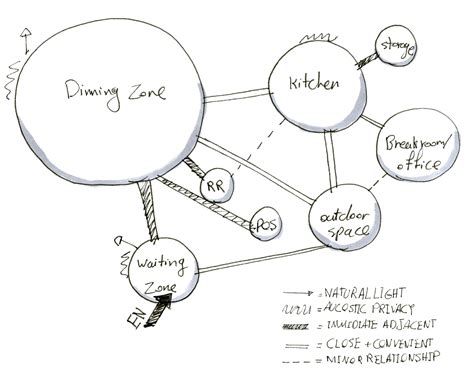 Dinning Zone
Kitchen
Storage
Breakroom/
office
RR
POS
outdoor
space
Waiting
Zone
EN
= NATURAL LIGHT
= AUCOSTIC PRIVACY
= IMMIDIATE ADJACENT
= CLOSE + CONVENIENT
= MINOR RELATIONSHIP